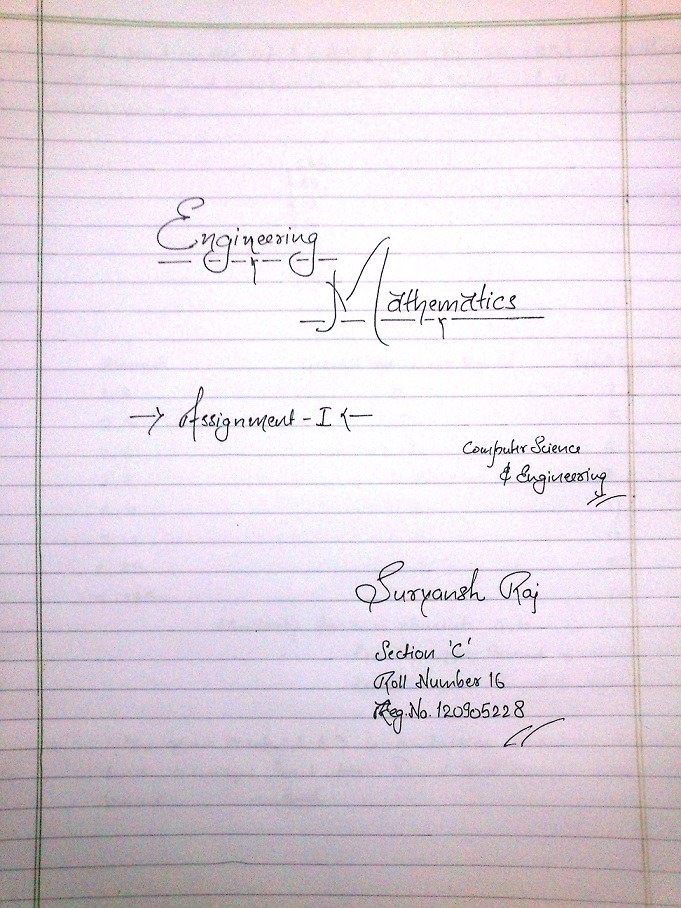 Engineering
Mathematics
Assignment - I
Computer Science
& Engineering
Suryansh Raj
Section 'C'
Roll Number 16
Reg. No. 120905228